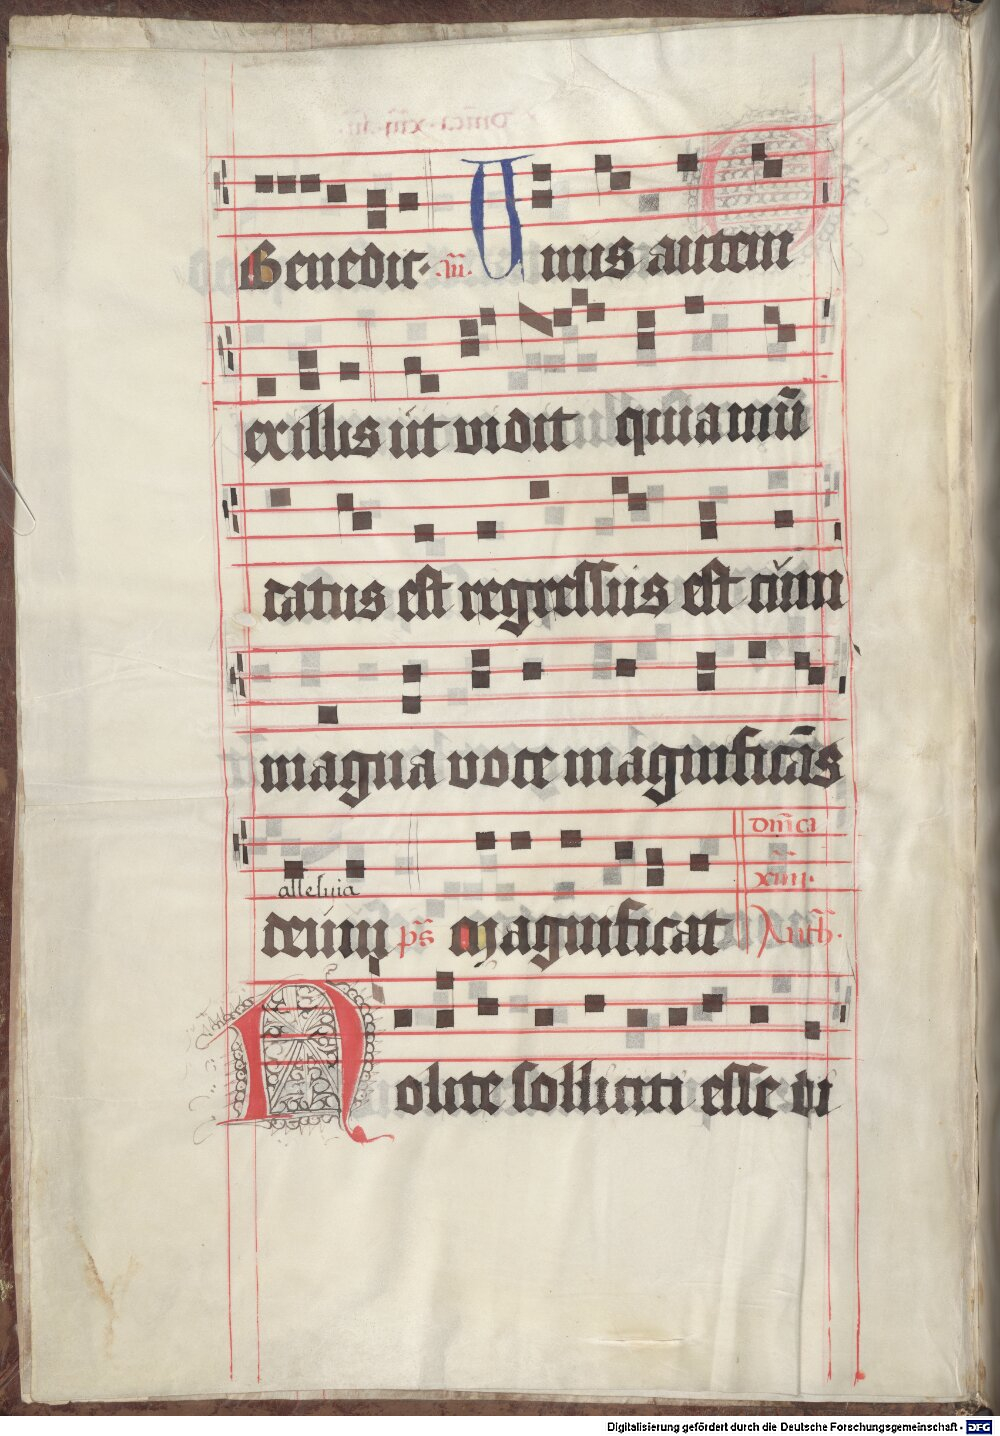 Benedic añ. Unus autem
exillis ut vidit quia mū
datus est regressus est cum
magna voce magnificās
dñica
xiiii.
alleluia
deum ps̄ Magnificat Anth̄.
Nolite solliciti esse di
Digitalisierung gefördert durch die Deutsche Forschungsgemeinschaft - DFG